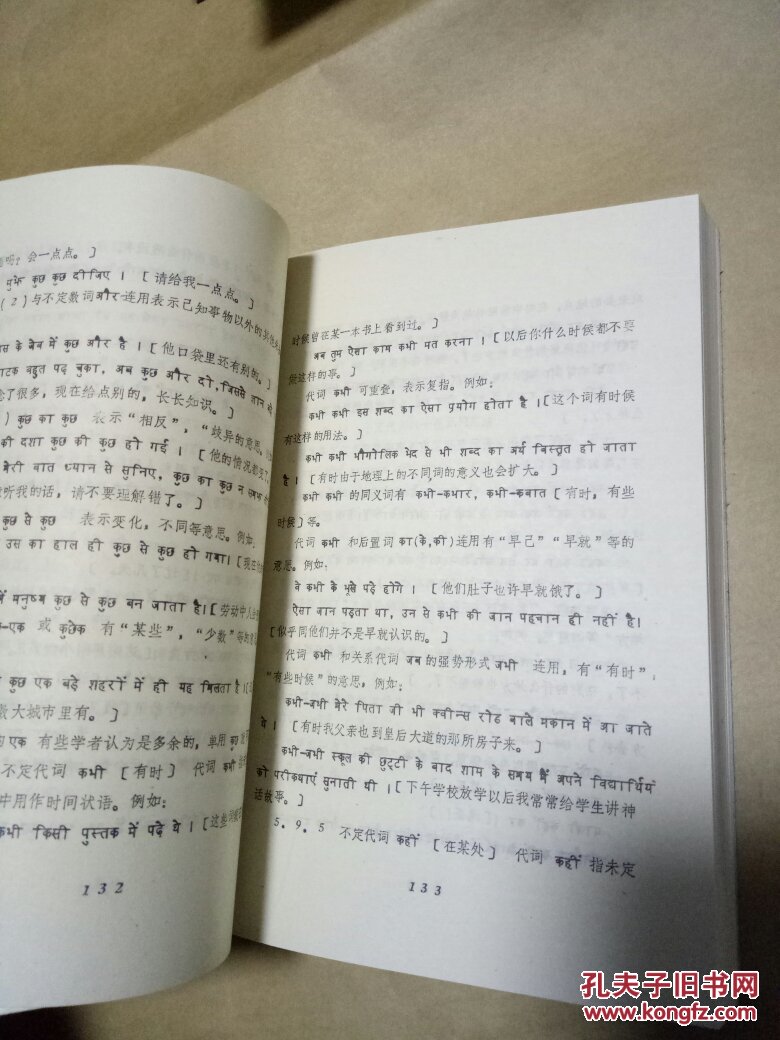 会一点点。]
मुझे कुछ कुछ दीजिए । [请给我一点点。]
(2)与不定数词और连用表示已知事物以外的其他
के जेब में कुछ और है । [他口袋里还有别的。]
बहुत पढ़ चुका, अब कुछ और दो, जिससे ज्ञान
了很多，现在给点别的，长长知识。]
कुछ का कुछ 表示“相反”，“歧异的意思。
की दशा कुछ की कुछ हो गई । [他的情况都变了
मेरी बात ध्यान से सुनिए, कुछ का कुछ न समझ
听我的话，请不要理解错了。]
कुछ से कुछ 表示变化，不同等意思。例如：
उस का हाल ही कुछ से कुछ हो गया। [现在
मनुष्य कुछ से कुछ बन जाता है। [劳动中人
-एक 或 कुछेक 有“某些”，“少数”等
कुछ एक बड़े शहरों में ही यह मिलता है। [
大城市里有。]
एक 有些学者认为是多余的，单用 कुछ
不定代词 कभी [有时] 代词 कभी
用作时间状语。例如：
कभी किसी पुस्तक में पढ़े थे । [这些
132
时候曾在某一本书上看到过。]
अब तुम ऐसा काम कभी मत करना । [以后你什么时候都不要
做这样的事。]
代词 कभी 可重叠，表示复指。例如：
कभी कभी इस शब्द का ऐसा प्रयोग होता है । [这个词有时候
有这样的用法。]
कभी कभी भौगोलिक भेद से भी शब्द का अर्थ विस्तृत हो जाता
है । [有时由于地理上的不同词的意义也会扩大。]
कभी कभी 的同义词有 कभी-कभार, कभी-कबात [有时，有些
时候]等。
代词 कभी 和后置词 का(के,की)连用有“早已”“早就”等的
意思。例如：
वे कभी के भूखे पड़े होंगे । [他们肚子也许早就饿了。]
ऐसा जान पड़ता था, उन से कभी की जान पहचान ही नहीं है।
[似乎同他们并不是早就认识的。]
代词 कभी 和关系代词 जब的强势形式 जभी 连用，有“有时”，
“有些时候”的意思，例如：
कभी-जभी मेरे पिता जी भी क्वीन्स रोड वाले मकान में आ जाते
थे । [有时我父亲也到皇后大道的那所房子来。]
कभी-जभी स्कूल की छुट्टी के बाद शाम के समय मैं अपने विद्यार्थियों
को परीकथाएं सुनाती थी । [下午学校放学以后我常常给学生讲神
话故事。]
5．9．5 不定代词 कहीं [在某处] 代词 कहीं 指未定
133
孔夫子旧书网
www.kongfz.com